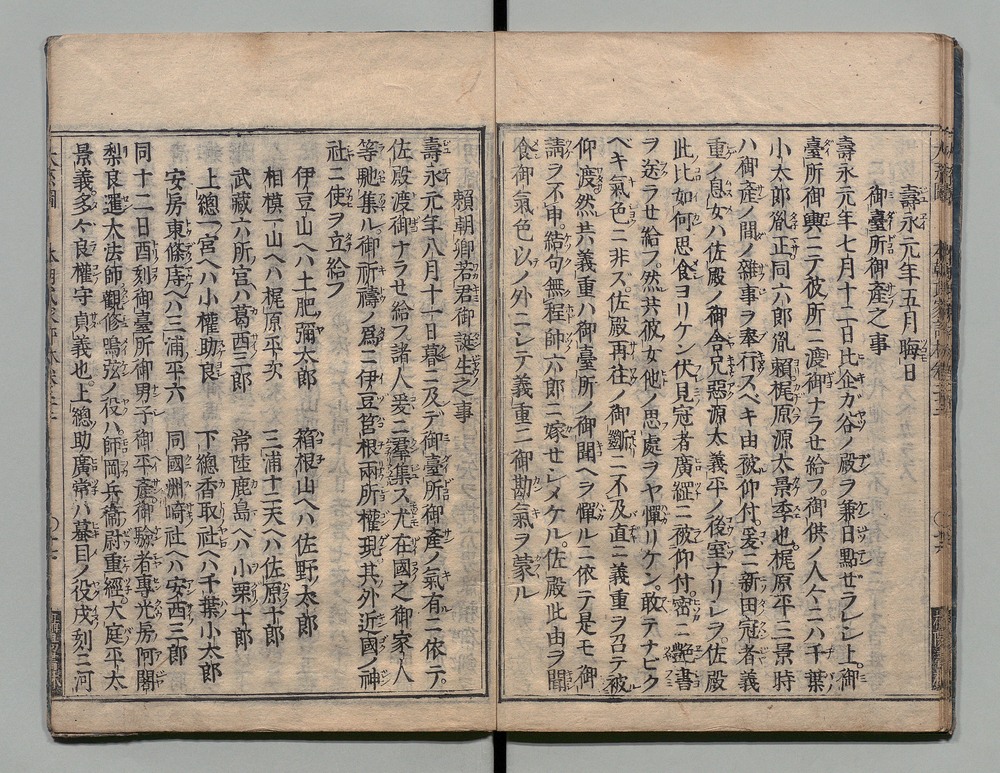 壽永元年五月晦日
御臺所御産之事
壽永元年七月十二日比企カ谷ノ殿ヲ兼日點ゼラレシ上。御
臺所御輿ニテ彼所ニ渡御ナラせ給フ。御供ノ人々ニハ千葉
小太郎胤正同六郎胤賴梶原源太景季也。梶原平三景時
ハ御産ノ間ノ雜事ヲ奉行スベキ由被仰付。爰ニ新田冠者義
重ノ息女ハ佐殿ノ御舎兄惡源太義平ノ後室ナリシヲ。佐殿
此比如何思食ヨリケン伏見冠者廣經ニ被仰付。密ニ艶書
ヲ送ラせ給フ。然共彼女他ノ思處ヲヤ憚リケン敢テナビク
ベキ氣色ニ非ス。佐殿再往ノ御 ニ不及直ニ義重ヲ召テ被
仰渡。然共義重ハ御臺所ノ御聞ヘヲ憚ルニ依テ是モ御
請ヲ不申。結句無程帥六郎ニ嫁せシメケル。佐殿此由ヲ聞
食御氣色以ノ外ニシテ義重ニ御勘氣ヲ蒙ル
賴朝卿若君御誕生之事
壽永元年八月十一日暮ニ及デ御臺所御産ノ氣有ニ依テ。
佐殿渡御ナラせ給フ。諸人爰ニ群集ス尤在國之御家人
等馳集ル御祈禱ノ爲ニ伊豆筥根兩所權現其外近國ノ神
社ニ使ヲ立給フ
伊豆山ヘハ土肥彌太郎 箱根山ヘハ佐野太郎
相模一山ヘハ梶原平次 三浦十二天ヘハ佐原十郎
武藏六所宮ハ葛西三郎 常陸鹿島ヘハ小栗十郎
上總一宮ヘハ小權助良 下總香取社ヘハ千葉小太郎
安房東條庤ヘハ三浦平六 同國洲崎社ヘハ安西三郎
同十二日酉刻御臺所御男子御平産御驗者專光房阿闍
梨良暹大法師觀修鳴弦ノ役ハ師岡兵衞尉重經大庭平太
景義多々良權守貞義也。上總助廣常ハ蟇目ノ役戌刻ニ河